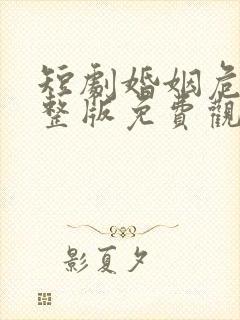 短劇婚姻危
整版免費觀
影夏夕